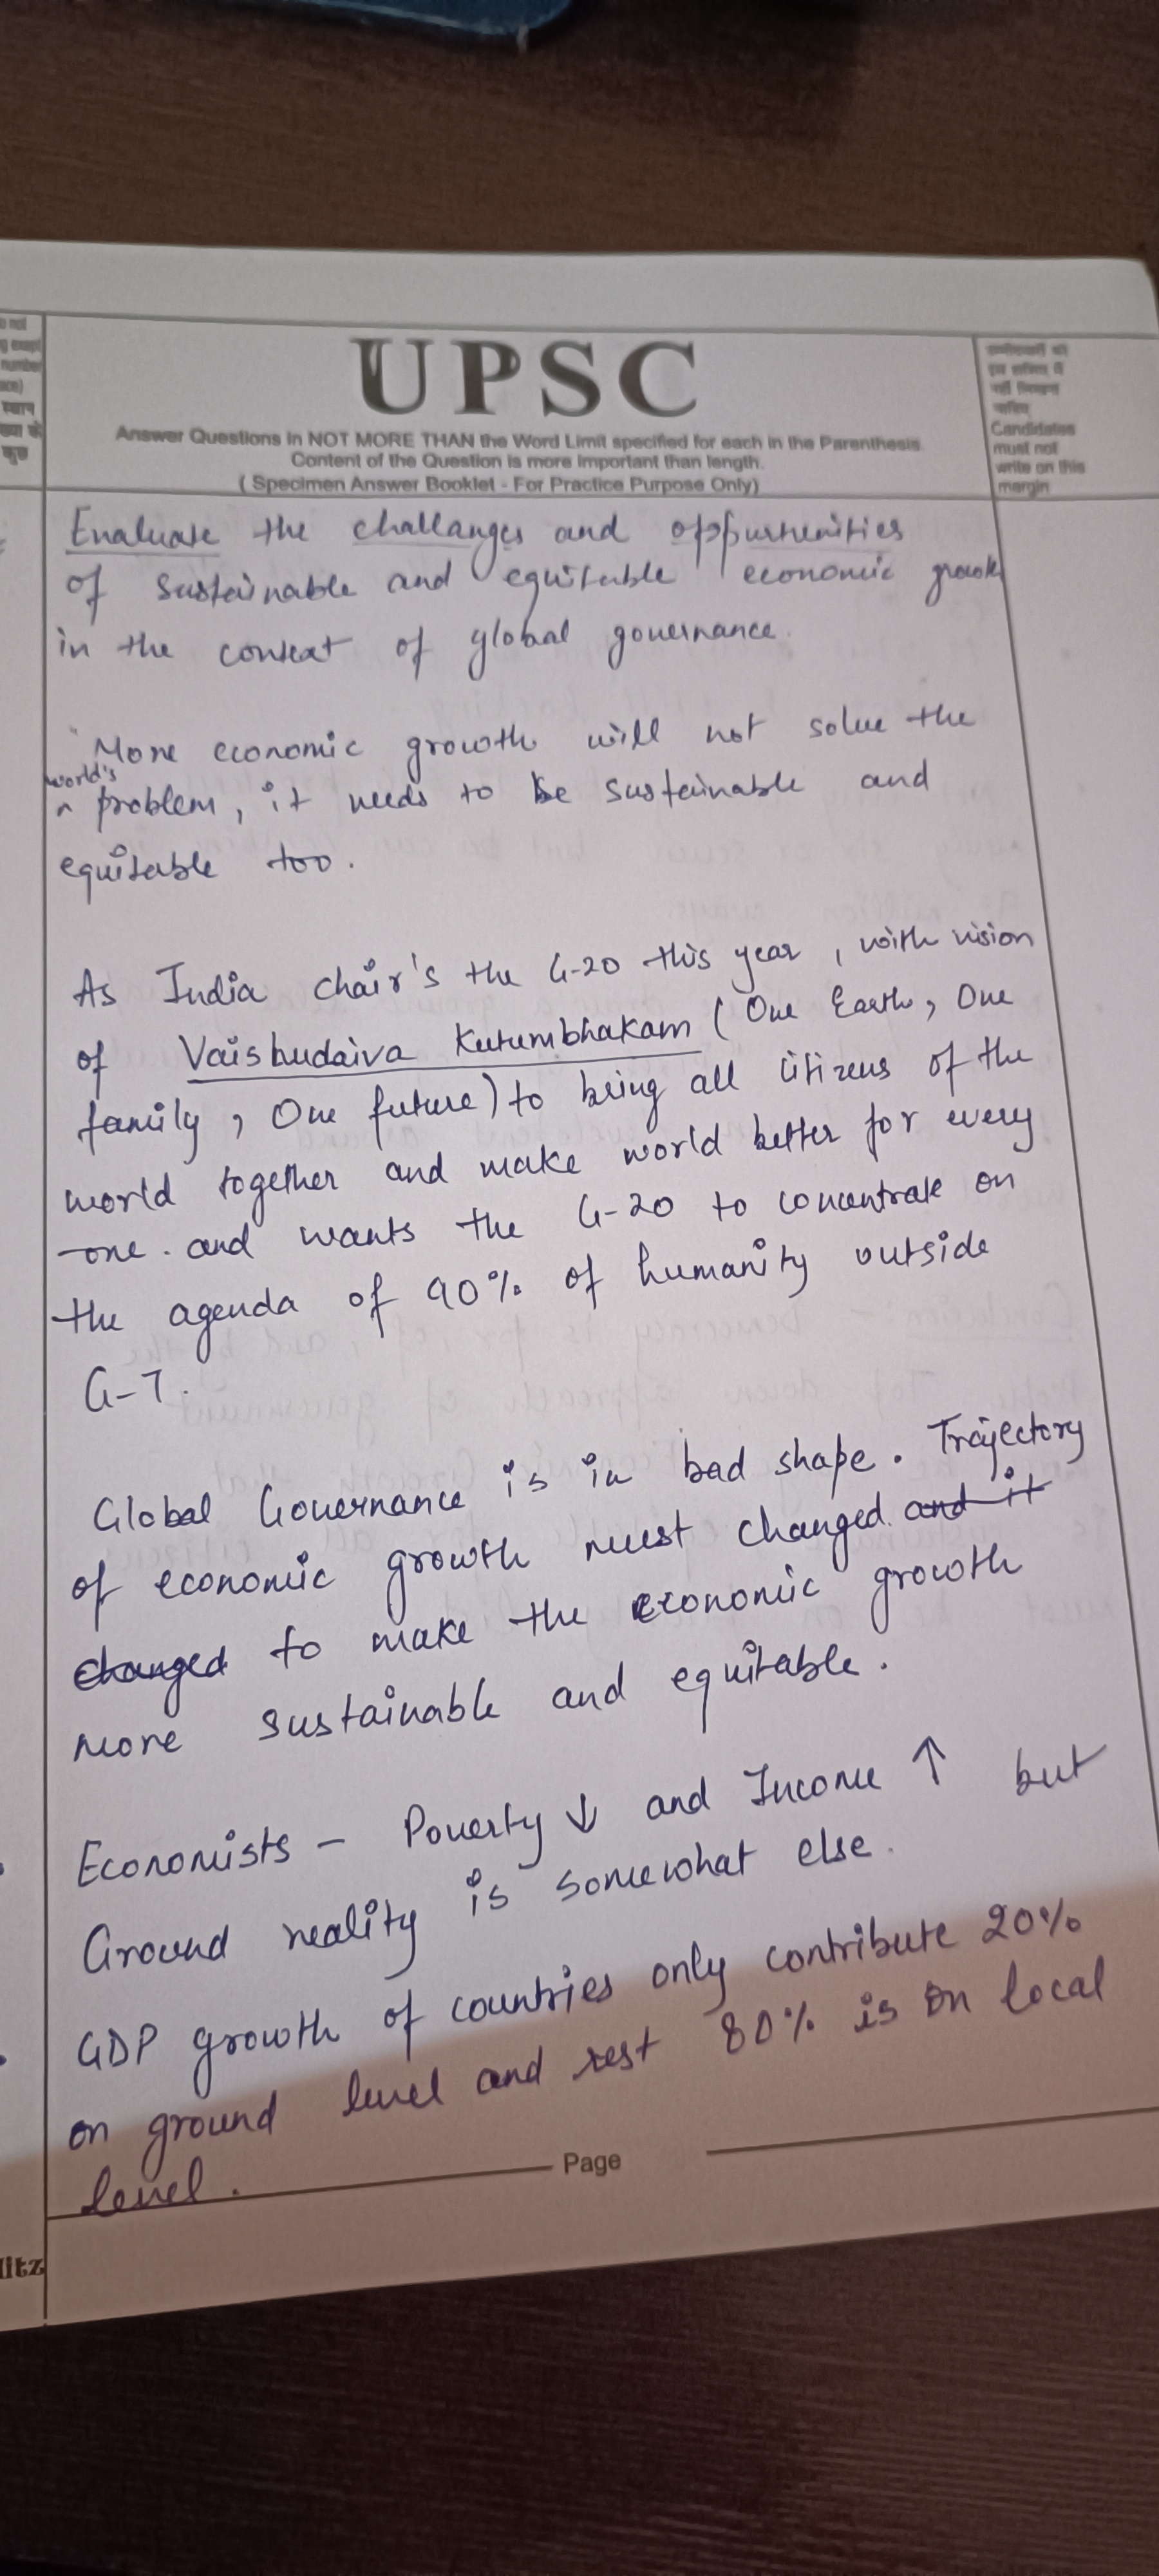 UPSC
Answer Questions in NOT MORE THAN the Word Limit specified for each in the Parenthesis.
Content of the Question is more important than length.
( Specimen Answer Booklet - For Practice Purpose Only)
Candidates
must not
write on this
margin
Enaluate the challanges and oppurtunities
of sustainable and equitable economic growth
in the context of global governance.
"More economic growth will not solve the
world's
^ problem, it needs to be sustainable and
equitable too.
As India chair's the G-20 this year, with vision
of Vaishudaiva Kutumbhakam (One Earth, One
family, One future) to bring all citizens of the
world together and make world better for every
-one. and wants the G-20 to concentrate on
the agenda of 90% of humanity outside
G-7.
Global Governance is in bad shape. Trajectory
of economic growth must changed. and it
changed to make the economic growth
more sustainable and equitable.
Economists - Poverty ↓ and Income ↑ but
Ground reality is somewhat else.
GDP growth of countries only contribute 20%
on ground level and rest 80% is on local
level.
Page
litz